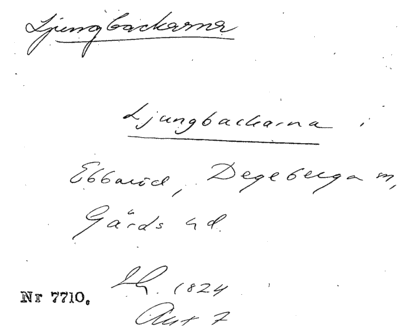 Ljungbackarna
Ljungbackarna i
Ebbaröd, Degeberga m,
Gärds hd.
Sk. 1824
Nr 7710.
Akt 7